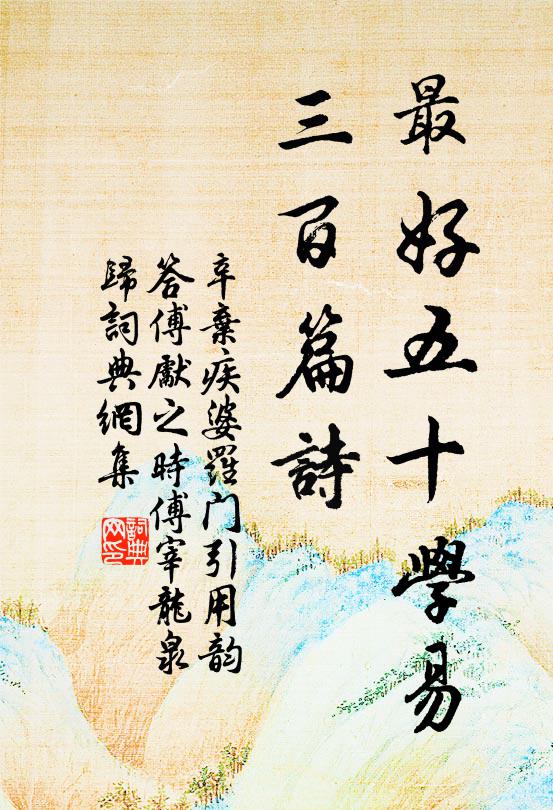 最好五十學易
三百篇詩
辛棄疾婆羅门引用韵
答傅獻之時傅宰龍泉
歸詞典網集
詞典
网印